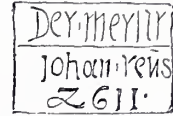 Der·meyllr
johan·reüs
Z611·